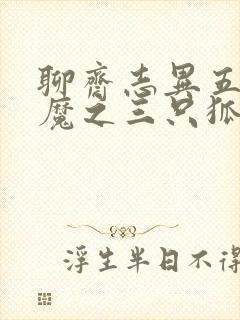 聊齋志異五
魔之三只狐
浮生半日不得